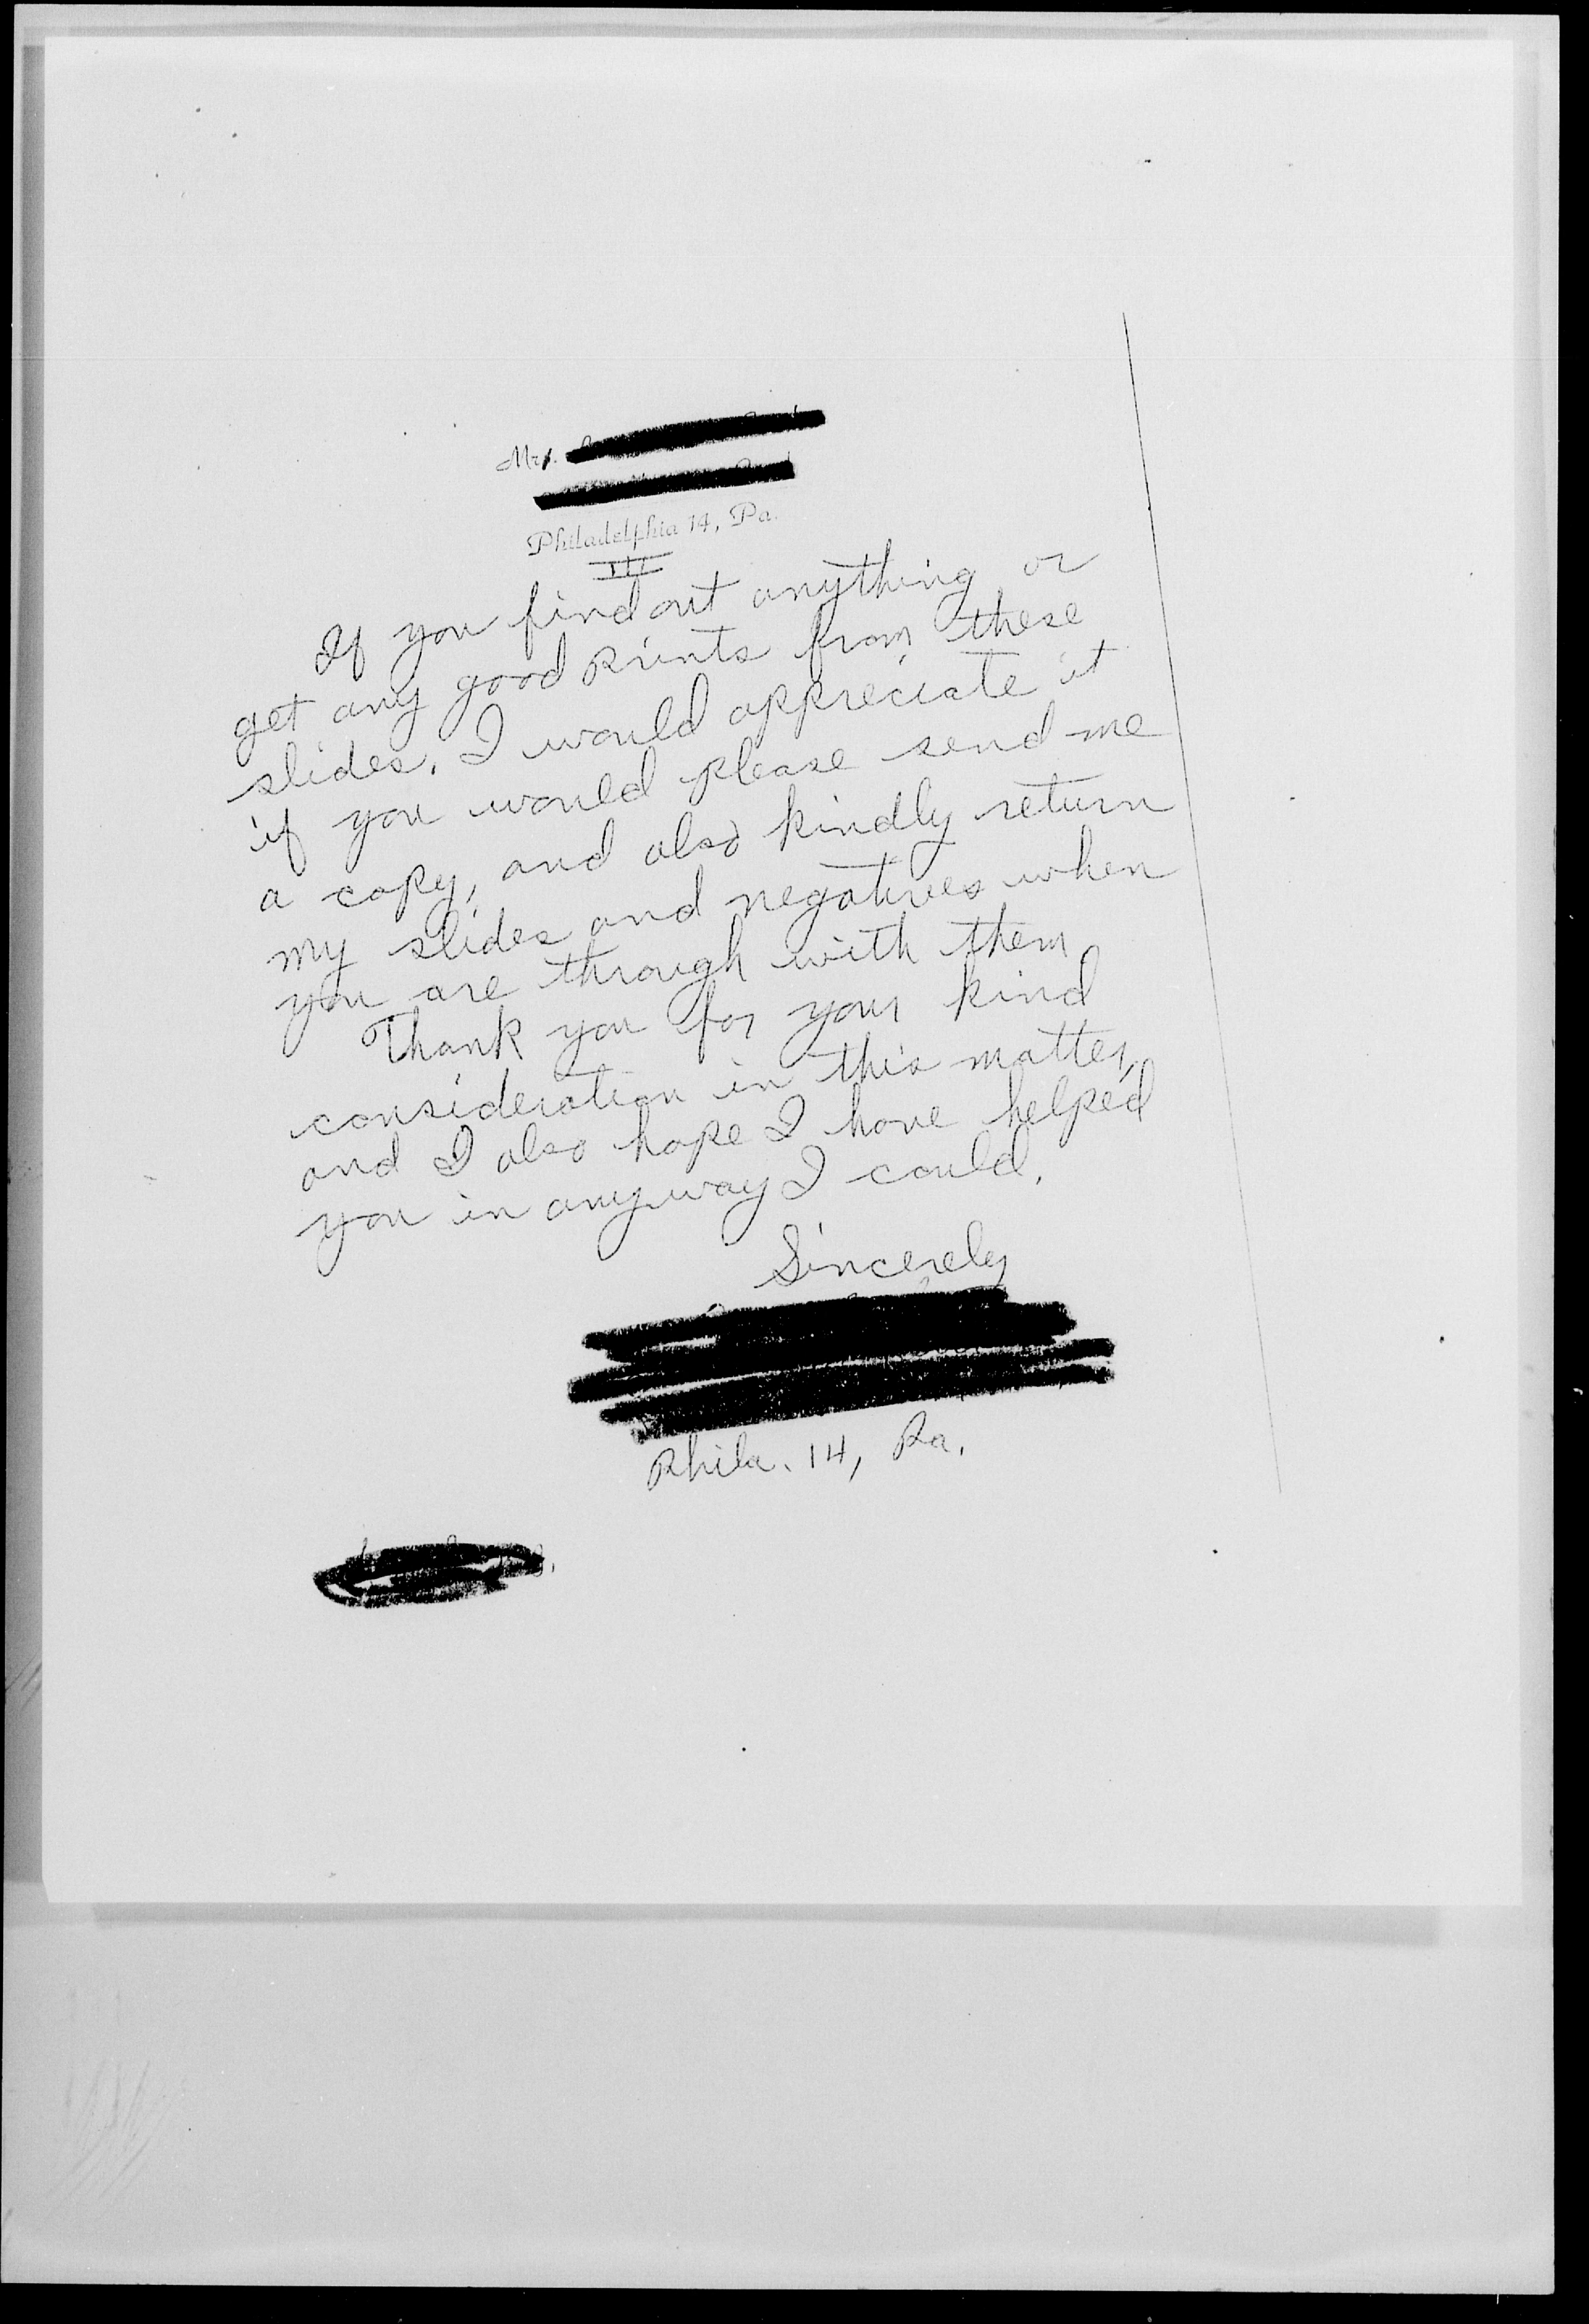 Mrs.
Philadelphia 14, Pa.
III
If you find out anything or
get any good prints from these
slides, I would appreciate it
if you would please send me
a copy, and also kindly return
my slides and negatives when
you are through with them
Thank you for your kind
consideration in this matter,
and I also hope I have helped
you in anyway I could.
Sincerely
Phila. 14, Pa.